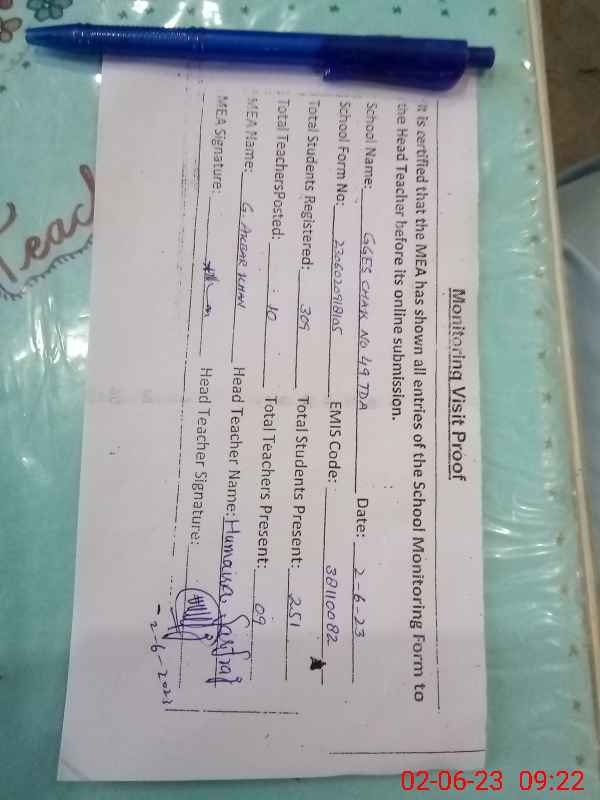 Monitoring Visit Proof
It is certified that the MEA has shown all entries of the School Monitoring Form to
the Head Teacher before its online submission.
School Name: GGES CHAK NO 49 TDA Date: 2-6-23
School Form No: 2306020918105 EMIS Code: 38110082
Total Students Registered: 309 Total Students Present: 251
Total TeachersPosted: 10 Total Teachers Present: 09
MEA Name: G. AKBAR KHAN Head Teacher Name: Humaira Sarfraz
MEA Signature: Head Teacher Signature:
-2-6-2023
Teach
02-06-23 09:22